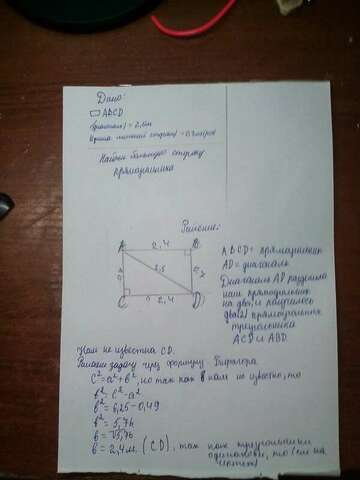 Дано:
▭ ABCD
(диагональ) = 2,5м
Длина меньшей стороны = 0,7 метров
Найдем большую сторону
прямоугольника
Решение:
A 2,4 B
2,5
C 2,4 D
ABCD = прямоугольник
AD = диагональ
Диагональ AD разделила
наш прямоугольник
на два, и получилось
два прямоугольных
треугольника
ACD и ABD.
Нам не известна CD.
Решаем задачу через формулу Пифагора
c² = a² + b², но так как b нам не известно, то
b² = c² - a²
b² = 6,25 - 0,49
b² = 5,76
b = √5,76
b = 2,4 м. (CD), так как треугольники
одинаковы, то (см на
чертеж)